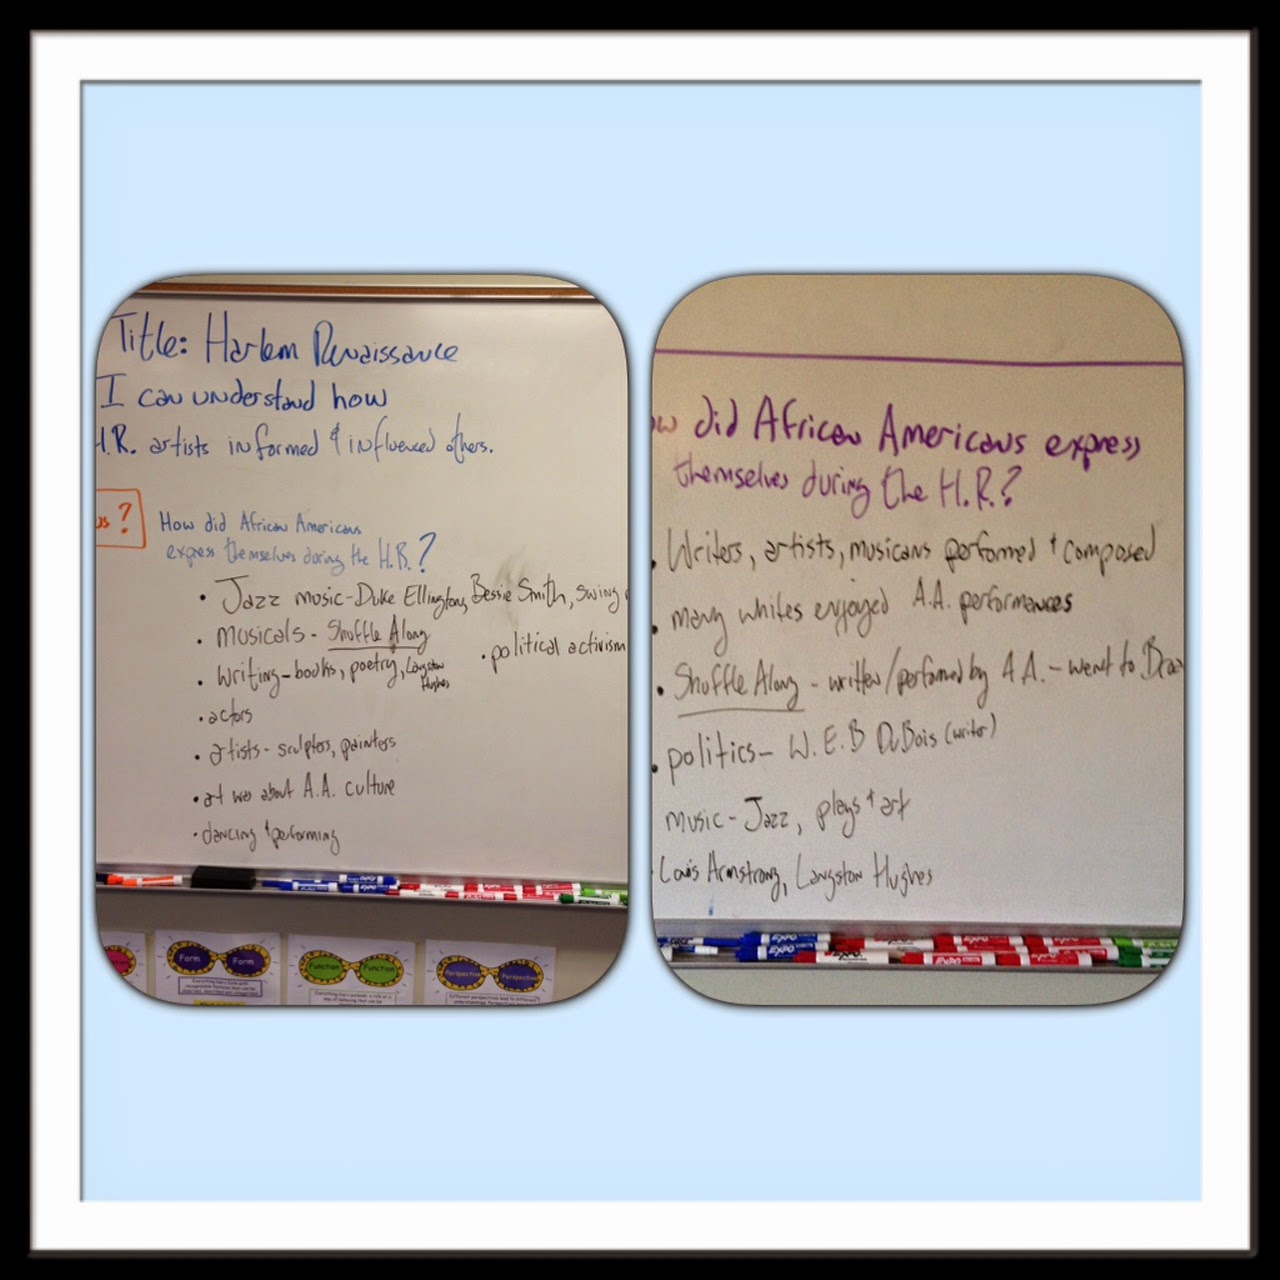 Title: Harlem Renaissance
I can understand how
H.R. artists informed & influenced others.
us?
How did African Americans
express themselves during the H.R.?
• Jazz music-Duke Ellington, Bessie Smith, swing
• musicals - Shuffle Along
• political activism
• writing-books, poetry, Langston
Hughes
• actors
• artists- sculptors, painters
• art was about A.A. culture
• dancing & performing
Form Form
Everything has a form with
recognizable features that can be
observed, described and categorized.
Function Function
Perspective Perspective
Different perspectives lead to different
ow did African Americans express
themselves during the H.R.?
• Writers, artists, musicans performed & composed
• many whites enjoyed A.A. performances
• Shuffle Along - written/performed by A.A. - went to Broa
• politics- W.E.B DuBois (writer)
music-Jazz, plays & art
• Louis Armstrong, Langston Hughes
EXPO
EXPO
EXPO
EXPO